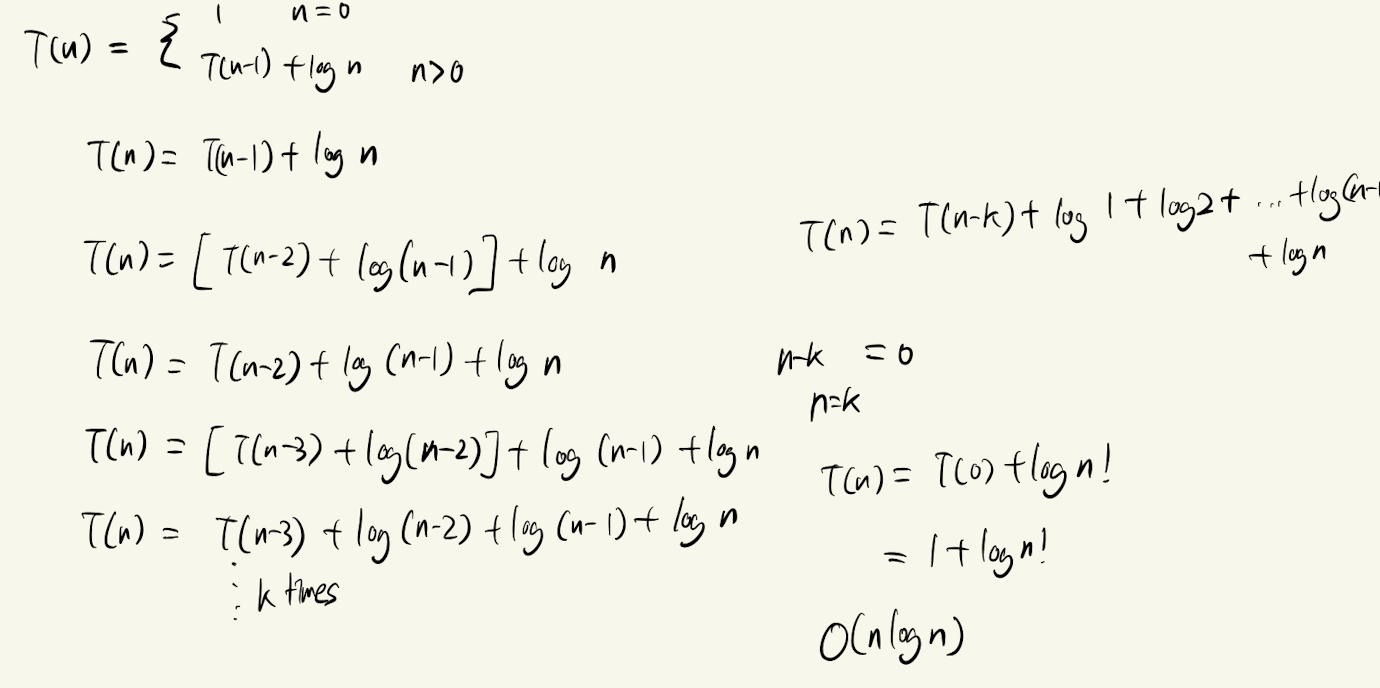 T(n) = { 1 n=0
T(n-1) + log n n>0
T(n) = T(n-1) + log n
T(n) = [T(n-2) + log(n-1)] + log n
T(n) = T(n-2) + log (n-1) + log n
T(n) = [T(n-3) + log(n-2)] + log (n-1) + log n
T(n) = T(n-3) + log (n-2) + log (n-1) + log n
⋮ k times
T(n) = T(n-k) + log 1 + log2 + ... + log(n-1
+ log n
n-k = 0
n=k
T(n) = T(0) + log n!
= 1 + log n!
O(n log n)